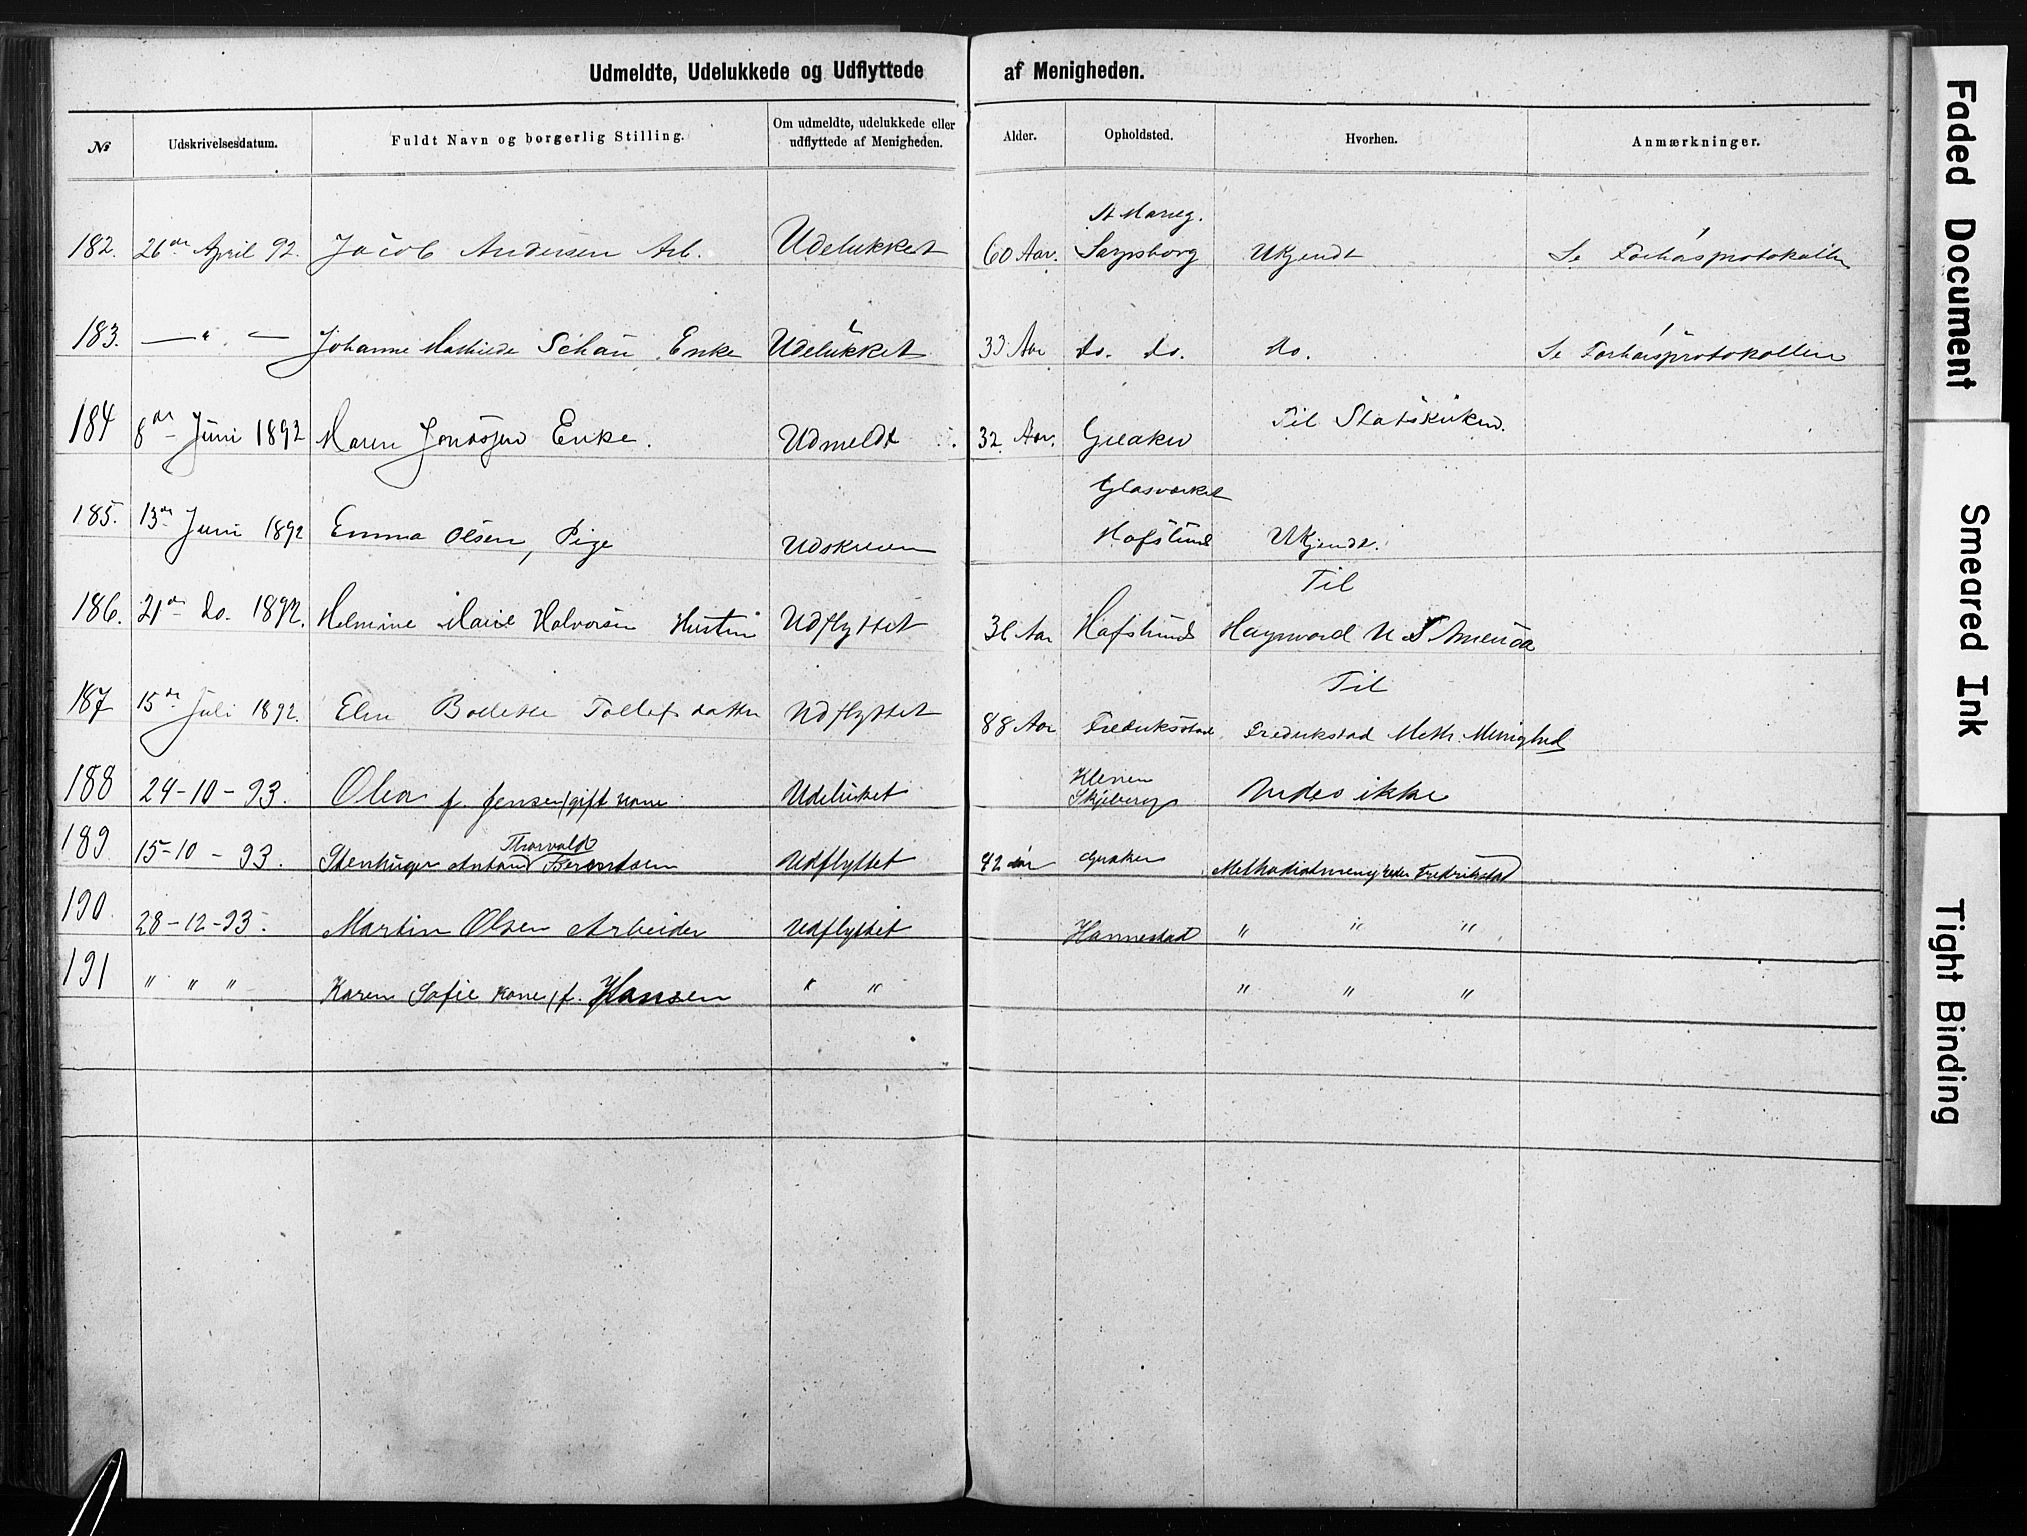 Udmeldte, Udelukkede og Udflyttede af Menigheden.
№ Udskrivelsesdatum. Fuldt Navn og borgerlig Stilling. Om udmeldte, udelukkede eller udflyttede af Menigheden. Alder. Opholdsted. Hvorhen. Anmærkninger.
182. 26de April 92. Jacob Andersen Arb. Udelukket 60 Aar. Sarpsborg Ukjendt Se Forhørsprotokollen
183. — " — Johanne Mathilde Schau, Enke Udelukket 33 Aar do. do. do. Se Forhørsprotokollen
184 8de Juni 1892 Maren Jonassen Enke. Udmeldt 32 Aar. Greaker Til Statskirken.
185. 13de Juni 1892 Emma Olsen, Pige Udskreven Glasværket Hafslund Ukjendt.
186. 21de do. 1892. Helmine Marie Halvorsen Hustru Udflyttet 36 Aar Hafslund Til Hayward N. S. Amerika
187 15de Juli 1892. Elen Bolette Tollefsdatter Udflyttet 88 Aar Fredriksstad Til Fredrikstad Meth. Menighed
188 24-10-93. Olea f. Jensen, gift kone Udelukket Skjeberg Vides ikke
189 15-10-93. Stenhuger Anton Thorvald Berentsen Udflyttet 42 aar Greaker Methodistmenigheden Fredrikstad
190. 28-12-93. Martin Olsen Arbeider Udflyttet Hannestad " " "
191 " " " Karen Sofie kone, f. Hansen " " " " "
Faded Document
Smeared Ink
Tight Binding